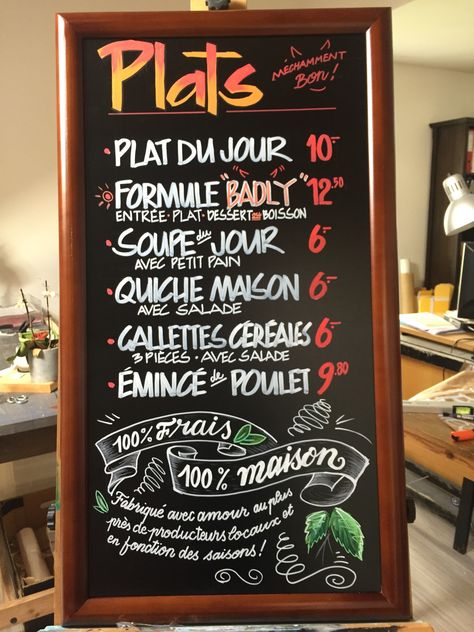 Plats
MÉCHAMMENT
BON!
• PLAT DU JOUR 10.-
FORMULE "BADLY" 12.50
ENTRÉE • PLAT • DESSERT OU BOISSON
• SOUPE du JOUR 6.-
AVEC PETIT PAIN
• QUICHE MAISON 6.-
AVEC SALADE
• GALLETTES CÉRÉALES 6.-
3 PIÈCES • AVEC SALADE
• ÉMINCÉ de POULET 9.80
100% Frais
100% maison
Fabriqué avec amour au plus
près de producteurs locaux et
en fonction des saisons !